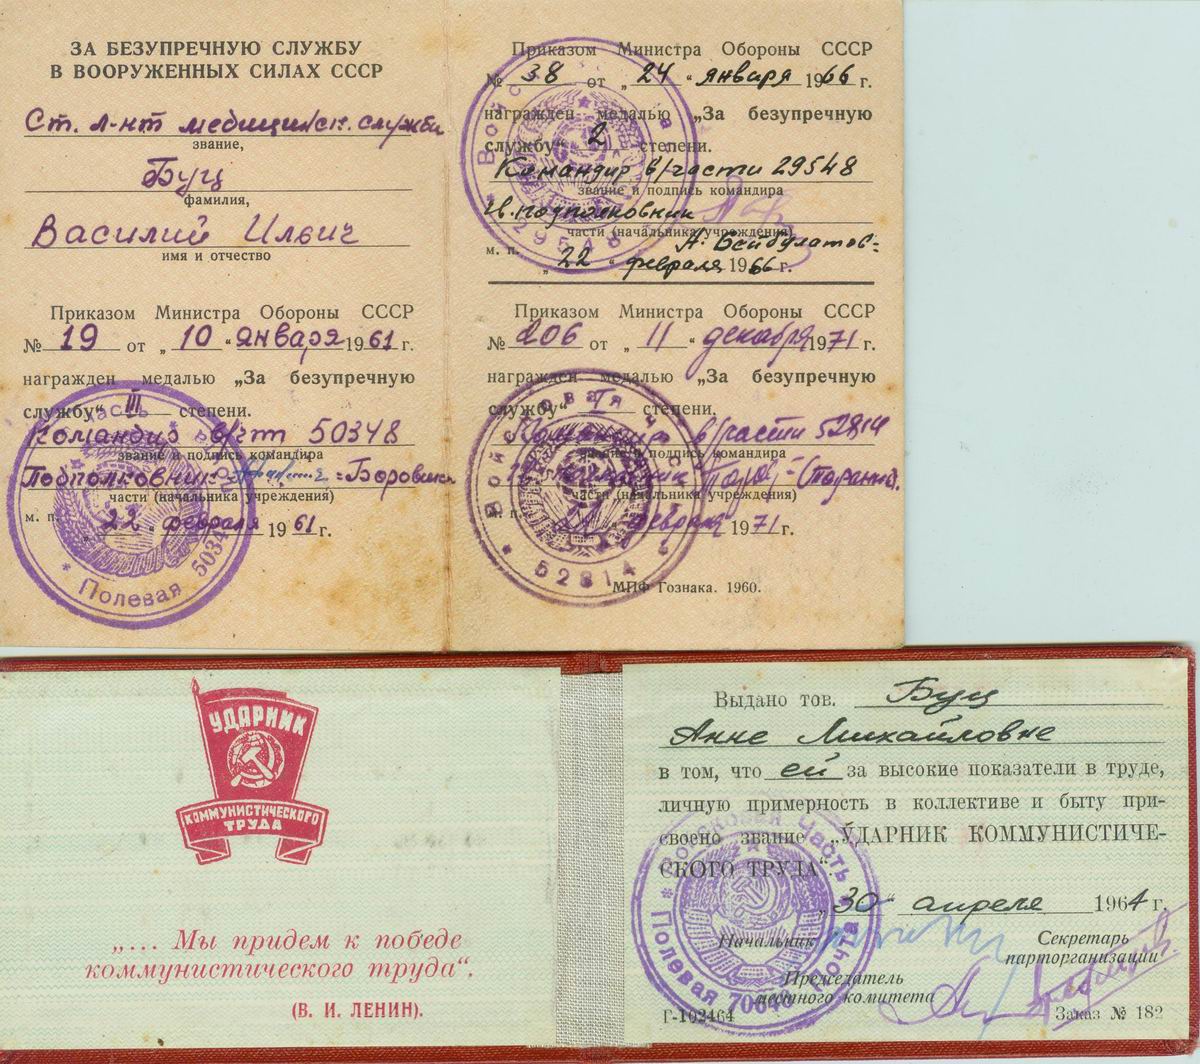 ЗА БЕЗУПРЕЧНУЮ СЛУЖБУ
В ВООРУЖЕННЫХ СИЛАХ СССР
Ст. л-нт медицинск. службы
звание,
Буц
фамилия,
Василий Ильич
имя и отчество
Приказом Министра Обороны СССР
№ 19 от „10“ января 1961 г.
награжден медалью „За безупречную
службу“ III степени.
Командир в/чпп 50348
звание и подпись командира
Подполковник
части (начальника учреждения)
м. п. „22“ февраля 1961 г.
Полевая
Приказом Министра Обороны СССР
№ 38 от „24“ января 1966 г.
награжден медалью „За безупречную
службу“ 2 степени.
Командир в/части 29548
звание и подпись командира
подполковник
части (начальника учреждения)
А. Бейбулатов
м. п. „22“ февраля 1966 г.
29548
Приказом Министра Обороны СССР
№ 206 от „11“ декабря 1971 г.
награжден медалью „За безупречную
службу“ I степени.
Командир в/части 52814
звание и подпись командира
части (начальника учреждения)
м. п. февраля 1971 г.
Войсковая часть
52814
МПФ Гознака. 1960.
УДАРНИК
КОММУНИСТИЧЕСКОГО
ТРУДА
„... Мы придем к победе
коммунистического труда“.
(В. И. ЛЕНИН).
Выдано тов. Буц
Анне Михайловне
в том, что ей за высокие показатели в труде,
личную примерность в коллективе и быту при-
своено звание „УДАРНИК КОММУНИСТИЧЕ-
СКОГО ТРУДА“.
„30“ апреля 1964 г.
Начальник
Секретарь
парторганизации
Председатель
местного комитета
Войсковая Часть
Полевая Почта
Г-102464
Заказ № 182